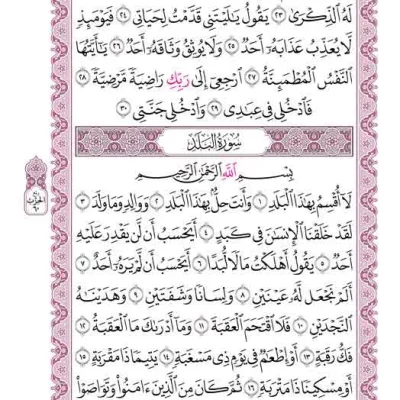 لَهُ الذِّكْرَىٰ ٢٣ يَقُولُ يَٰلَيْتَنِى قَدَّمْتُ لِحَيَاتِى ٢٤ فَيَوْمَئِذٍ
لَّا يُعَذِّبُ عَذَابَهُۥٓ أَحَدٌ ٢٥ وَلَا يُوثِقُ وَثَاقَهُۥٓ أَحَدٌ ٢٦ يَٰٓأَيَّتُهَا
النَّفْسُ الْمُطْمَئِنَّةُ ٢٧ ارْجِعِىٓ إِلَىٰ رَبِّكِ رَاضِيَةً مَّرْضِيَّةً ٢٨
فَادْخُلِى فِى عِبَٰدِى ٢٩ وَادْخُلِى جَنَّتِى ٣٠
سُورَةُ الْبَلَدِ
بِسْمِ اللَّهِ الرَّحْمَٰنِ الرَّحِيمِ
لَآ أُقْسِمُ بِهَٰذَا الْبَلَدِ ١ وَأَنتَ حِلٌّۢ بِهَٰذَا الْبَلَدِ ٢ وَوَالِدٍ وَمَا وَلَدَ ٣
لَقَدْ خَلَقْنَا الْإِنسَٰنَ فِى كَبَدٍ ٤ أَيَحْسَبُ أَن لَّن يَقْدِرَ عَلَيْهِ
أَحَدٌ ٥ يَقُولُ أَهْلَكْتُ مَالًا لُّبَدًا ٦ أَيَحْسَبُ أَن لَّمْ يَرَهُۥٓ أَحَدٌ ٧
أَلَمْ نَجْعَل لَّهُۥ عَيْنَيْنِ ٨ وَلِسَانًا وَشَفَتَيْنِ ٩ وَهَدَيْنَٰهُ
النَّجْدَيْنِ ١٠ فَلَا اقْتَحَمَ الْعَقَبَةَ ١١ وَمَآ أَدْرَىٰكَ مَا الْعَقَبَةُ ١٢
فَكُّ رَقَبَةٍ ١٣ أَوْ إِطْعَٰمٌ فِى يَوْمٍ ذِى مَسْغَبَةٍ ١٤ يَتِيمًا ذَا مَقْرَبَةٍ ١٥
أَوْ مِسْكِينًا ذَا مَتْرَبَةٍ ١٦ ثُمَّ كَانَ مِنَ الَّذِينَ ءَامَنُوا وَتَوَاصَوْا